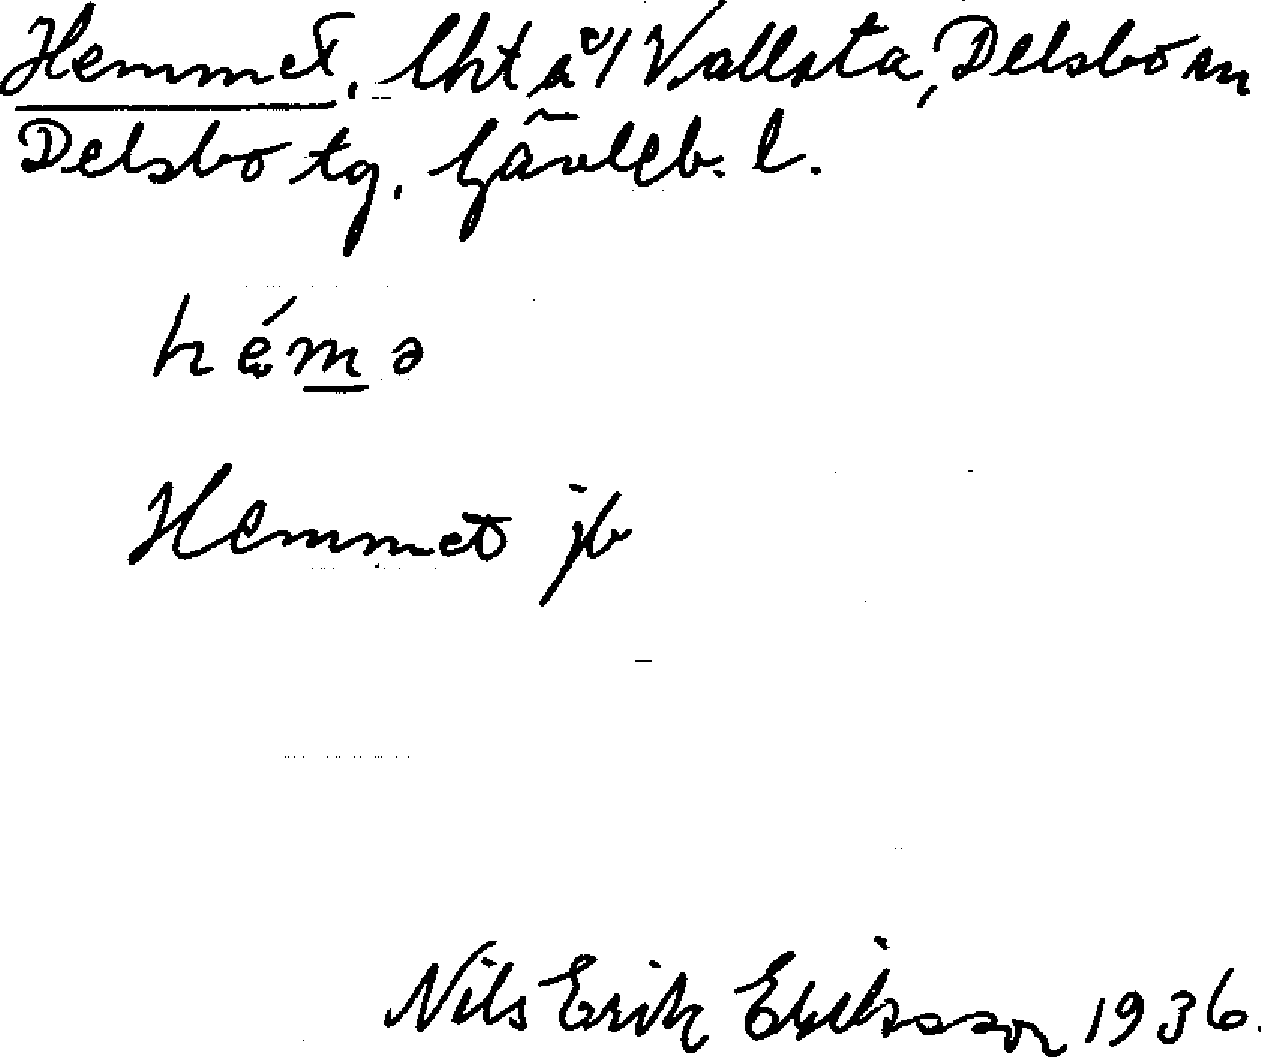 Hemmet. lht å 1/1 Vallsta, Delsbo sn
Delsbo tg. Gävleb. l.
hémə
Hemmet jb
Nils Erik Eriksson 1936.